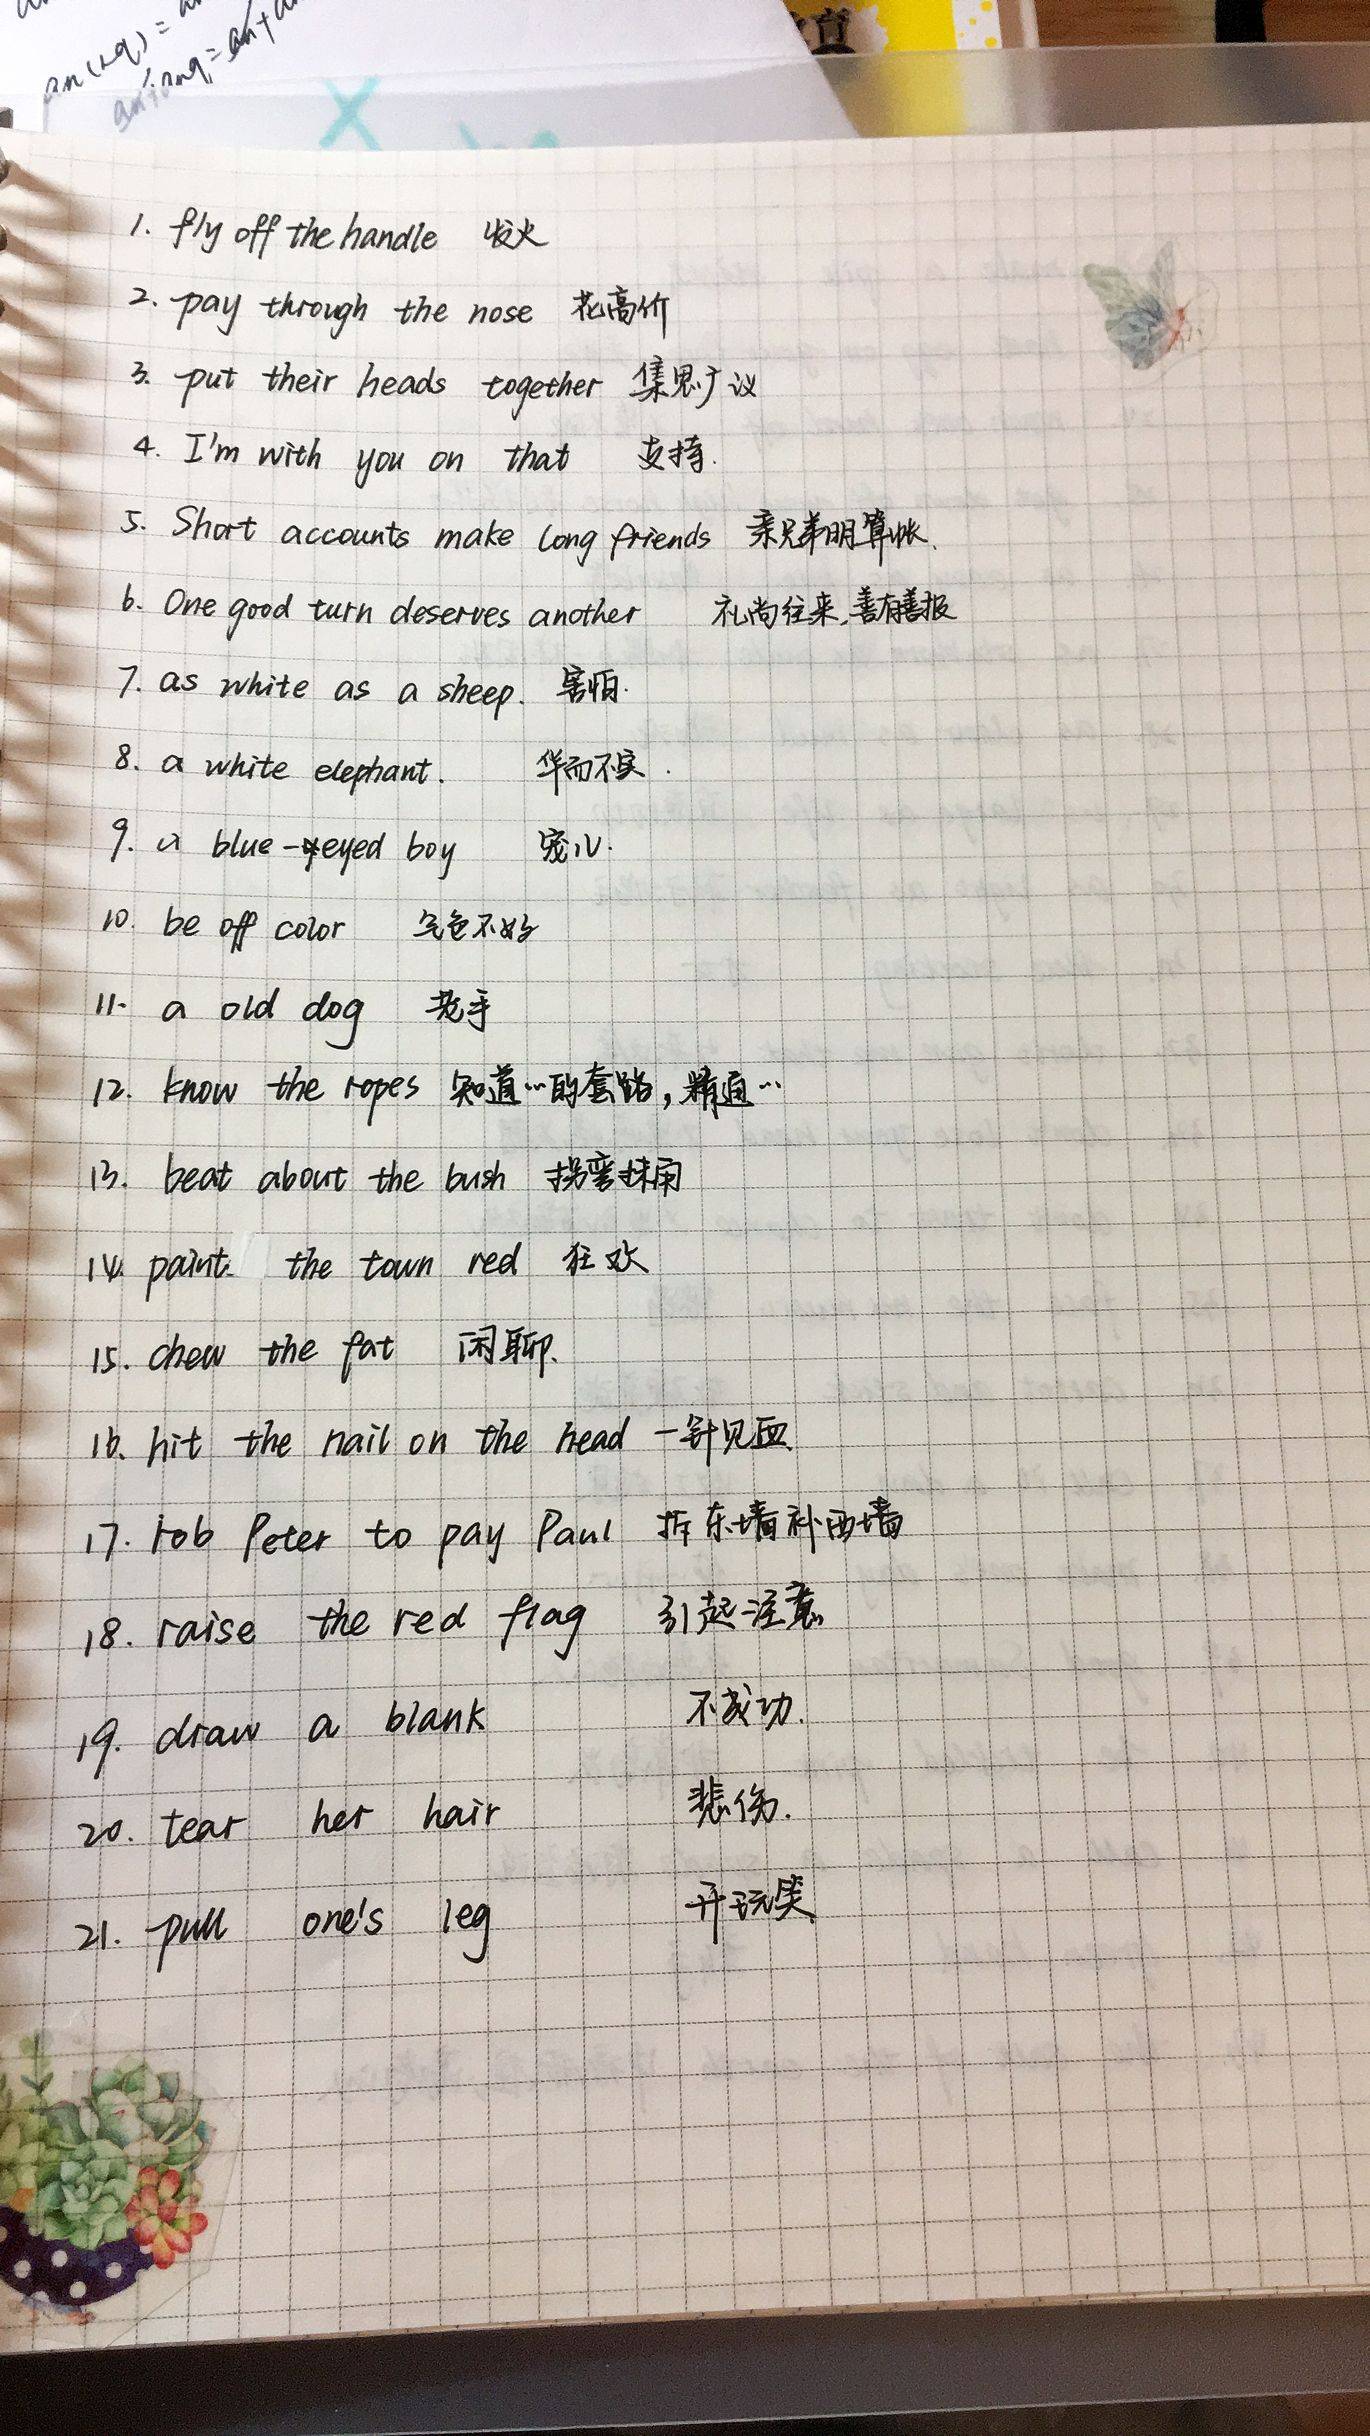 育
1. fly off the handle 发火
2. pay through the nose 花高价
3. put their heads together 集思广议
4. I'm with you on that 支持.
5. Short accounts make long friends 亲兄弟明算帐.
6. One good turn deserves another 礼尚往来,善有善报
7. as white as a sheep. 害怕.
8. a white elephant. 华而不实.
9. a blue-eyed boy 宠儿.
10. be off color 气色不好
11. a old dog 老手
12. know the ropes 知道…的套路,精通…
13. beat about the bush 拐弯抹角
14. paint the town red 狂欢
15. chew the fat 闲聊.
16. hit the nail on the head 一针见血.
17. rob Peter to pay Paul 拆东墙补西墙
18. raise the red flag 引起注意
19. draw a blank 不成功.
20. tear her hair 悲伤.
21. pull one's leg 开玩笑